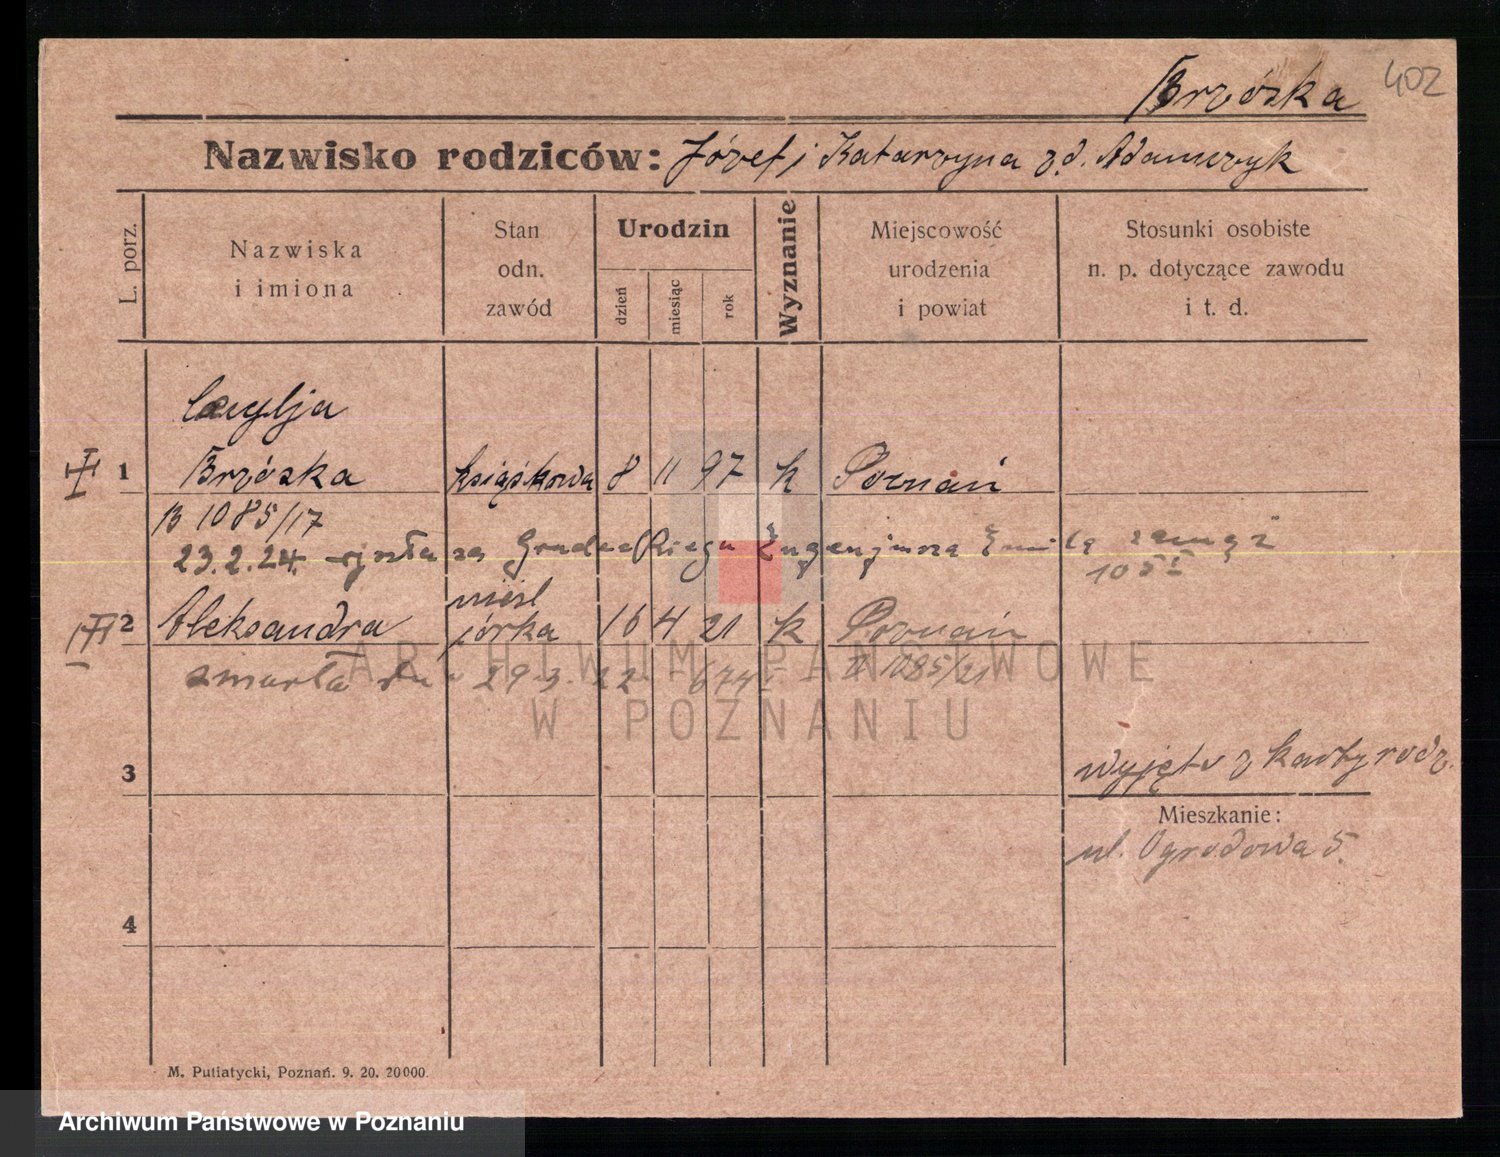 402
Brzóska
Nazwisko rodziców: Józef i Katarzyna z d. Adamczyk
L. porz.
Nazwiska
i imiona
Stan
odn.
zawód
Urodzin
dzień
miesiąc
rok
Wyznanie
Miejscowość
urodzenia
i powiat
Stosunki osobiste
n. p. dotyczące zawodu
i t. d.
Cecylja
1 Brzóska książkowa 8 11 97 k Poznań
B 1085/17
23.2.24. wyszła za Eugenjusza zamąż
105
2 Aleksandra córka 16 4 21 k Poznań
zmarła 29.3.22 674 1085/21
ARCHIWUM PAŃSTWOWE
W POZNANIU
3
wyjęto z karty rodz.
Mieszkanie:
ul. Ogrodowa 5.
4
M. Putiatycki, Poznań. 9. 20. 20000.
Archiwum Państwowe w Poznaniu